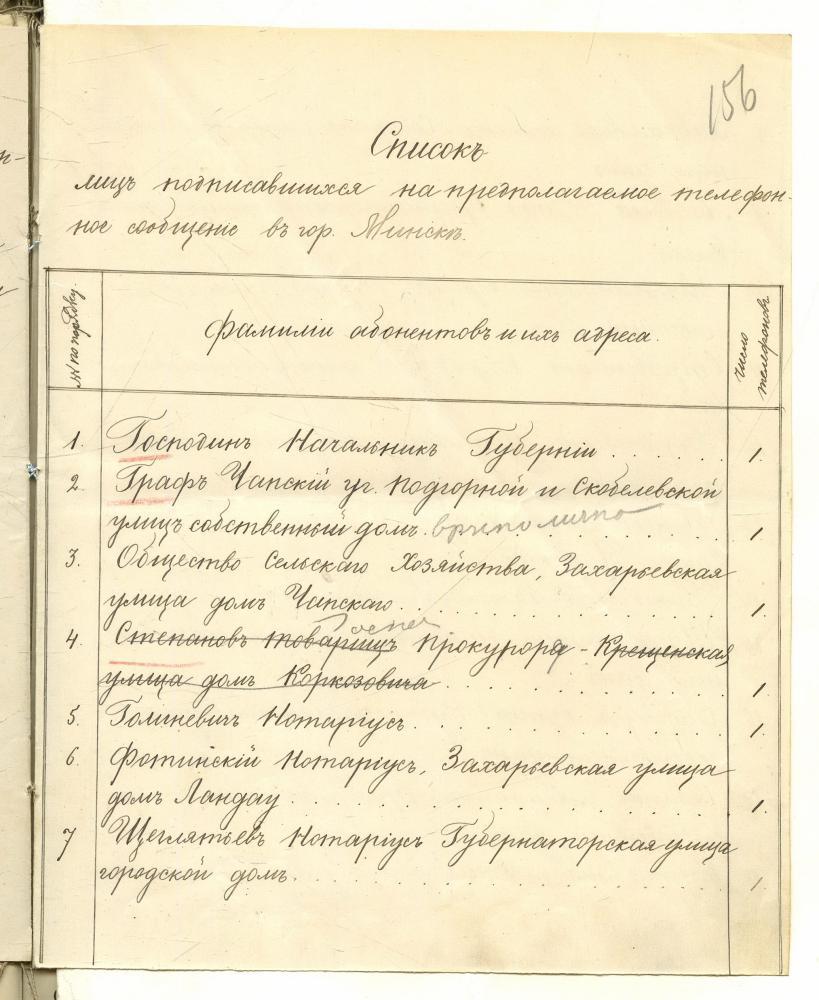 156
Списокъ
лицъ подписавшихся на предполагаемое телефон-
ное сообщеніе въ гор. Минскѣ.
№ по порядку.
Фамиліи абонентовъ и ихъ адреса.
Число телефоновъ
1. Господинъ Начальникъ Губерніи . . . . . . 1.
2. Графъ Чапскій уг. Подгорной и Скобелевской
улицъ собственный домъ. . . . . . 1.
3. Общество Сельскаго Хозяйства, Захарьевская
улица домъ Чапскаго . . . . . . 1.
4. Степановъ товарищъ Прокурора - Крещенская
улица домъ Коркозовича . . . . . . 1.
5. Голиневичъ Нотаріусъ . . . . . . 1.
6. Фотинскій Нотаріусъ, Захарьевская улица
домъ Ландау . . . . . . 1.
7 Щеглятьевъ Нотаріусъ Губернаторская улица
городской домъ . . . . . . 1.